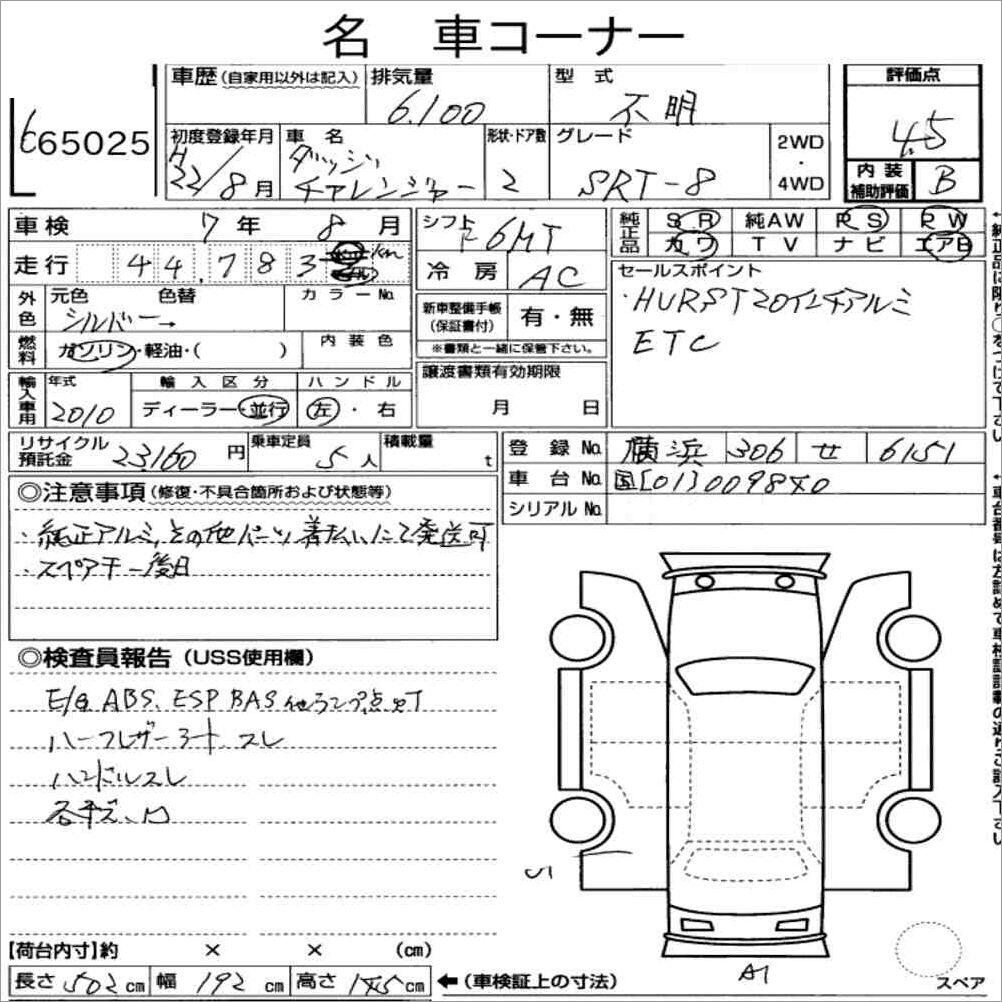 名 車コーナー
65025
車歴 (自家用以外は記入)
排気量
6.100
型 式
不明
評価点
4.5
初度登録年月
H
22/8月
車 名
ダッジ
チャレンジャー
形状・ドア数
2
グレード
SRT-8
2WD
・
4WD
内 装
補助評価
B
車検 7年 8月
シフト
F 6MT
純正品
S R 純AW P S P W
カ ワ T V ナ ビ エアB
走行 44,783
冷 房
AC
セールスポイント
・HURST20インチアルミ
ETC
外色
元色 色替 カラーNo.
シルバー→
新車整備手帳
(保証書付)
有・無
※書類と一緒に保管下さい。
燃料
ガソリン・軽油・( )
内 装 色
譲渡書類有効期限
月 日
輸入車用
年式
2010
輸 入 区 分
ディーラー・並行
ハ ン ド ル
左・右
リサイクル
預託金
23,160円
乗車定員
5人
積載量
t
登 録 No. 横浜 306 せ 6151
車 台 No. 国[01]009840
シリアル No.
◎注意事項 (修復・不具合箇所および状態等)
・純正アルミ,その他パーツ着払いにて発送可
・スペアキー後日
◎検査員報告 (USS使用欄)
E/G ABS. ESP BAS 他ランプ点灯
ハーフレザーシート スレ
ハンドルスレ
各キズ、凹
A1
【荷台内寸】約 × × (cm)
長さ 502 cm 幅 192 cm 高さ 145 cm ←(車検証上の寸法)
スペア
↑純正品に限り○をつけて下さい
↑車台番号は左詰めで車検証記載の通りご記入下さい